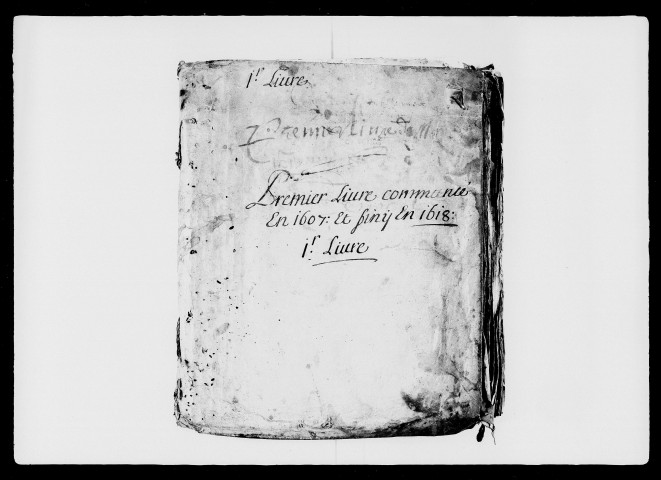 1.r Liure
Premier Liure
Premier Liure commence
En 1607: Et finij En 1618:
1.r Liure